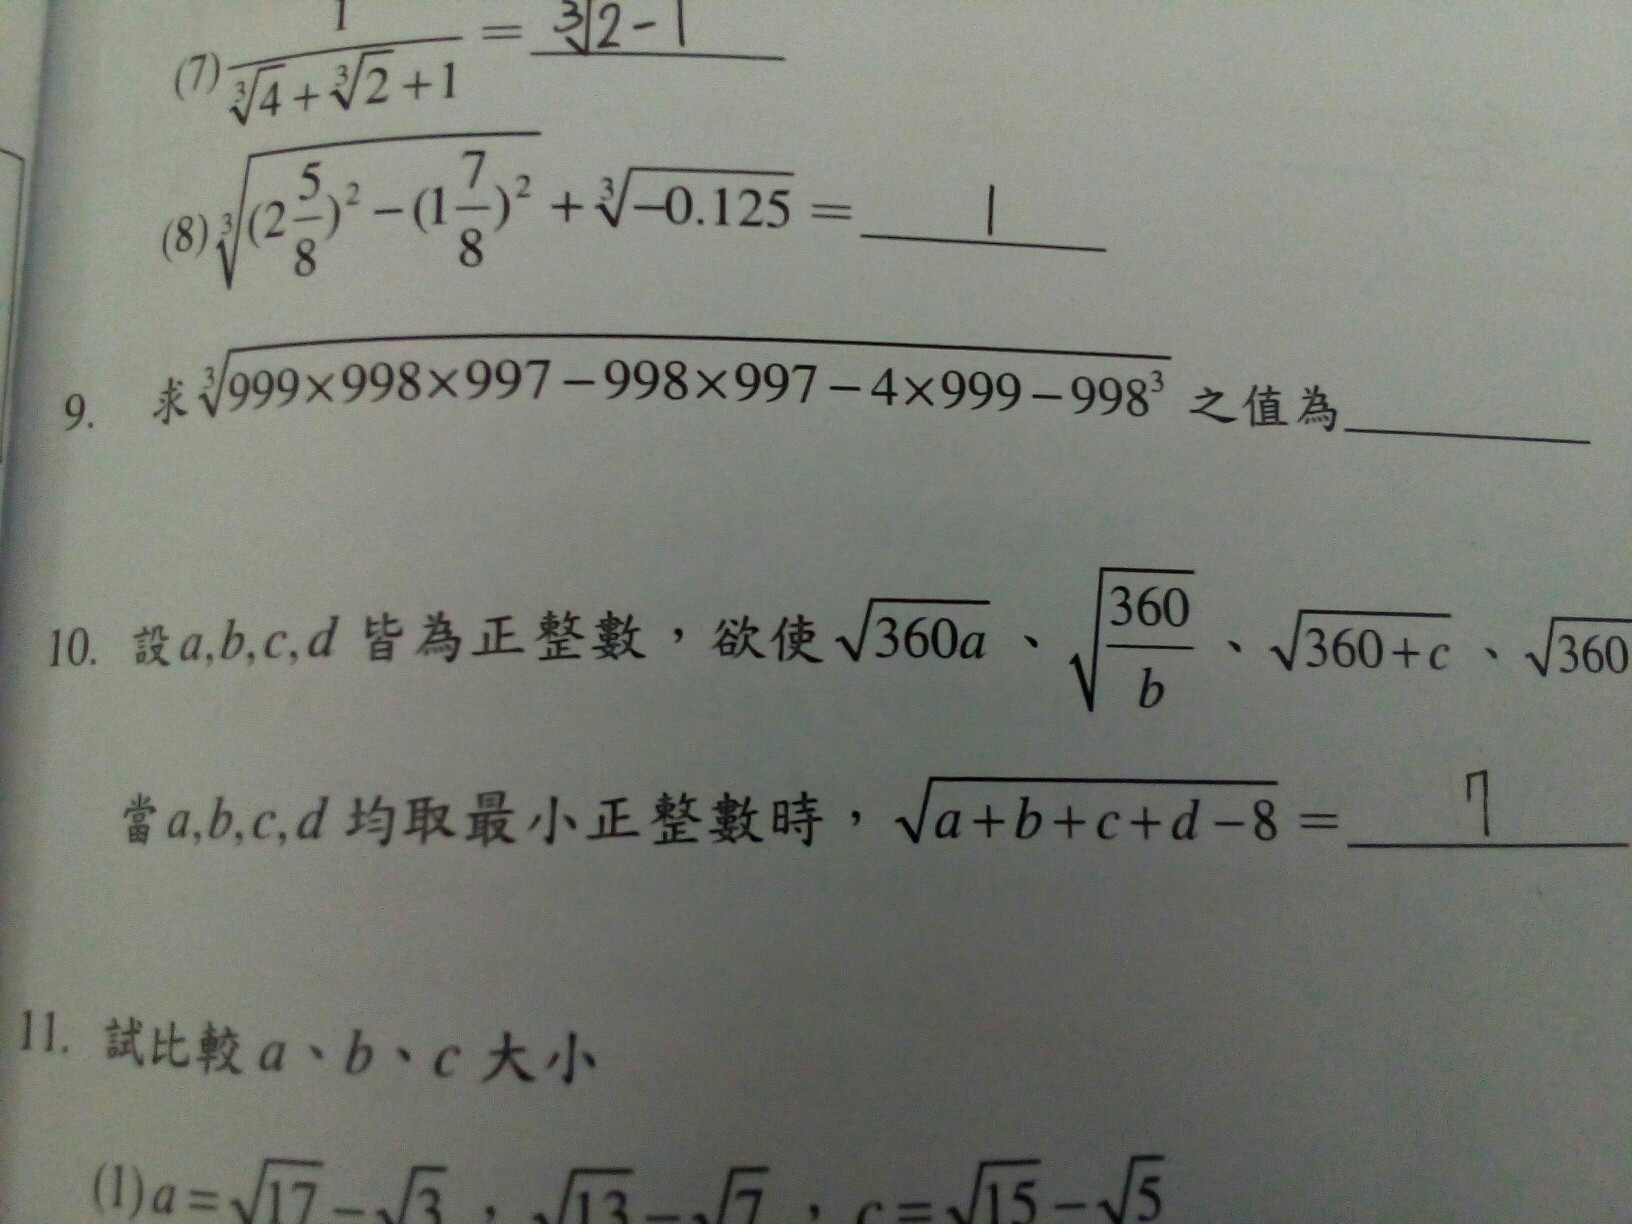 (7) \frac{1}{\sqrt[3]{4}+\sqrt[3]{2}+1} = \sqrt[3]{2}-1
(8) \sqrt[3]{(2\frac{5}{8})^2-(1\frac{7}{8})^2}+\sqrt[3]{-0.125}= 1
9. 求\sqrt[3]{999×998×997-998×997-4×999-998^3} 之值為
10. 設a,b,c,d 皆為正整數，欲使\sqrt{360a}、\sqrt{\frac{360}{b}}、\sqrt{360+c}、\sqrt{360
當a,b,c,d 均取最小正整數時，\sqrt{a+b+c+d-8}= 7
11. 試比較 a、b、c 大小
(1) a=\sqrt{17}-\sqrt{3}，\sqrt{13}-\sqrt{7}，c=\sqrt{15}-\sqrt{5}